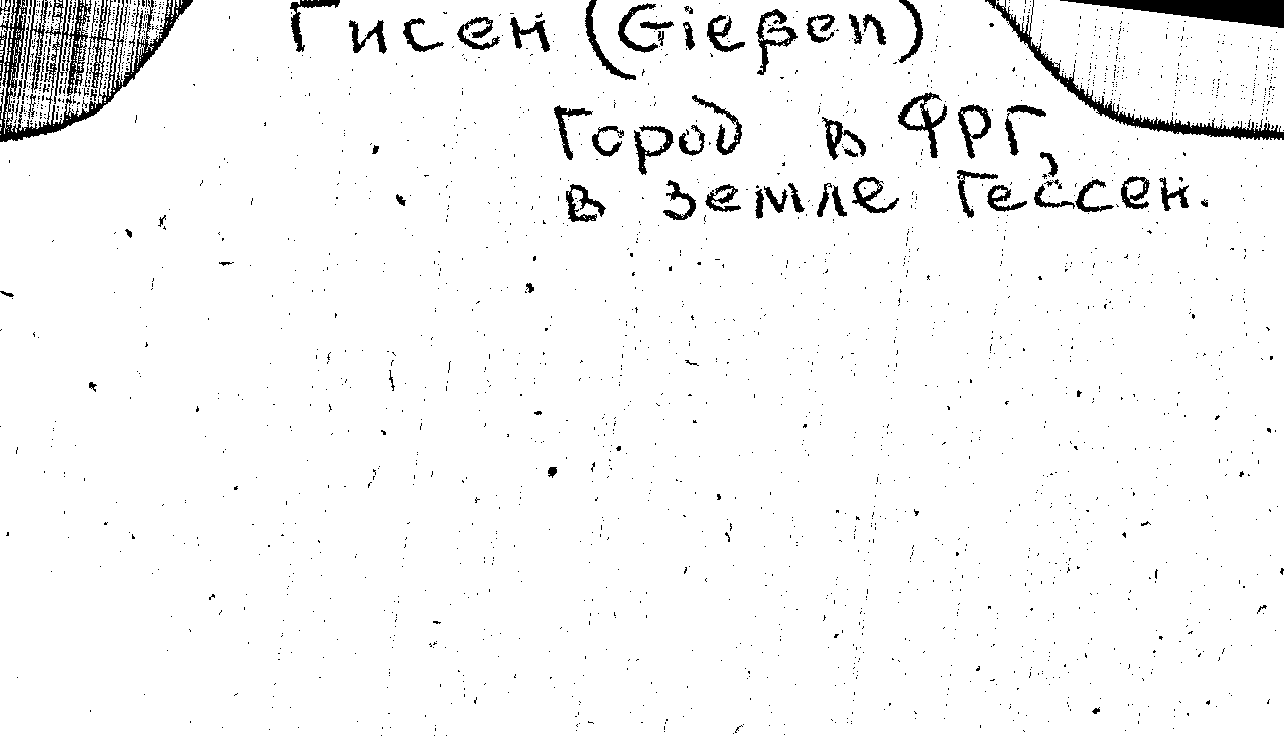 Гисен (Gießen)
Город в ФРГ,
в земле Гессен.